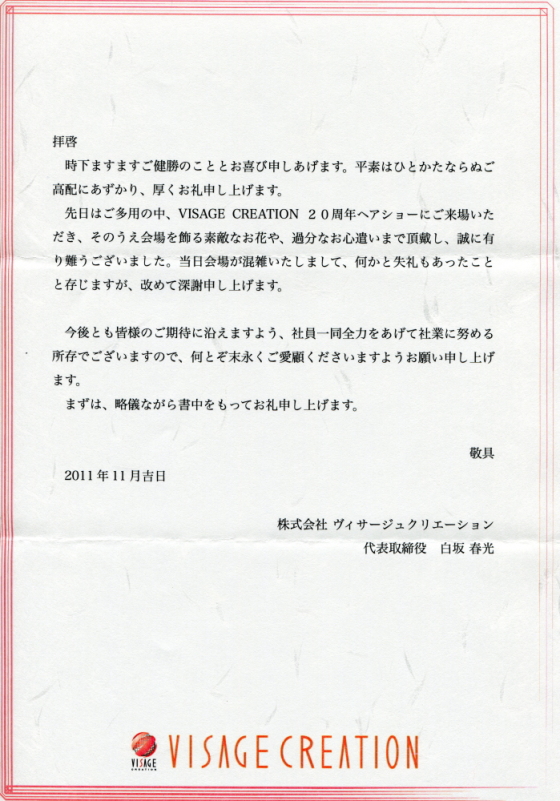 拝啓
　時下ますますご健勝のこととお喜び申しあげます。平素はひとかたならぬご
高配にあずかり、厚くお礼申し上げます。
　先日はご多用の中、VISAGE CREATION ２０周年ヘアショーにご来場いた
だき、そのうえ会場を飾る素敵なお花や、過分なお心遣いまで頂戴し、誠に有
り難うございました。当日会場が混雑いたしまして、何かと失礼もあったこと
と存じますが、改めて深謝申し上げます。
　今後とも皆様のご期待に沿えますよう、社員一同全力をあげて社業に努める
所存でございますので、何とぞ末永くご愛顧くださいますようお願い申し上げ
ます。
　まずは、略儀ながら書中をもってお礼申し上げます。
敬具
2011年11月吉日
株式会社 ヴィサージュクリエーション
代表取締役　白坂 春光
VISAGE
CREATION
VISAGE CREATION